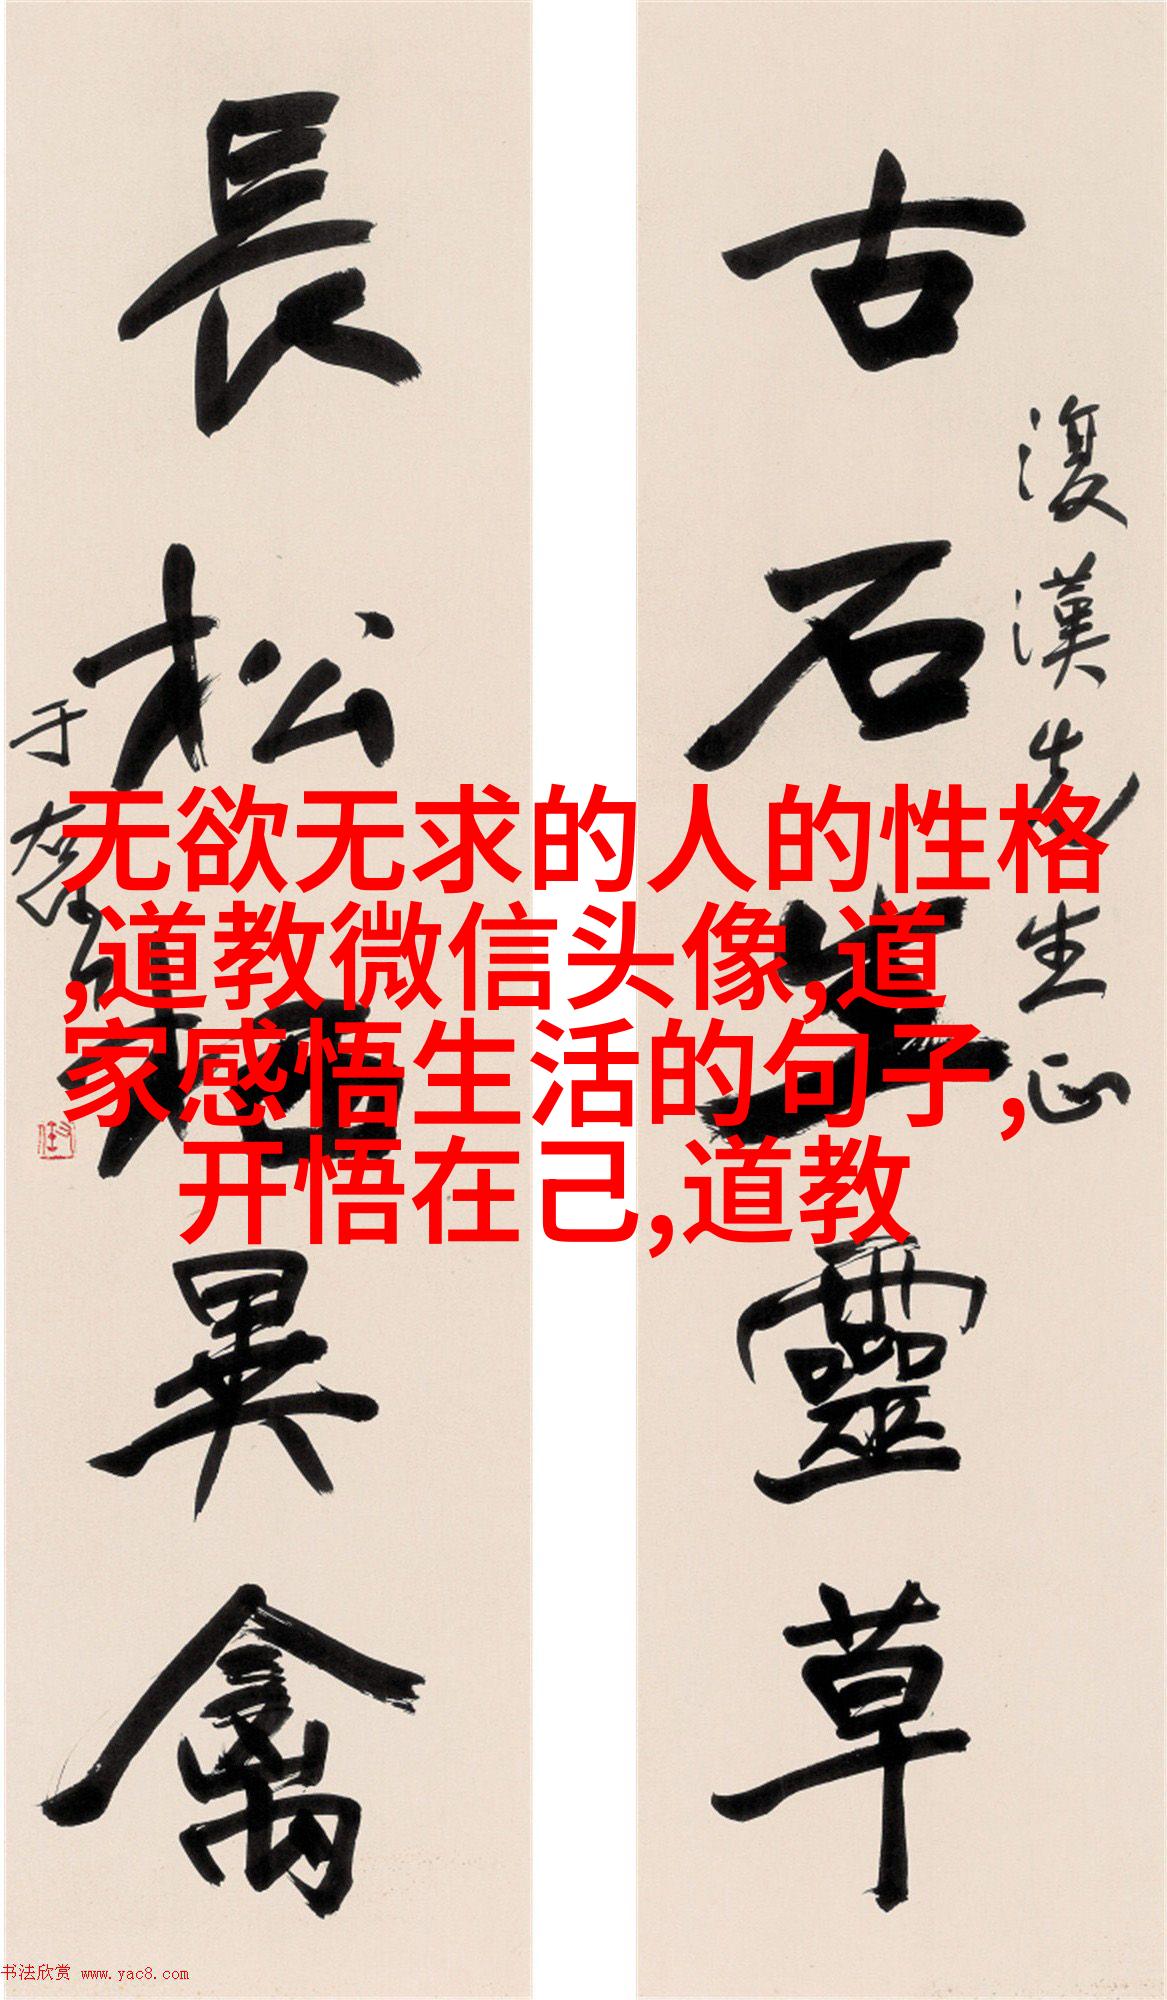 古石生靈草
復漢先生正
長松栖異禽
于右任
无欲无求的人的性格
,道教微信头像,道
家感悟生活的句子,
开悟在己,道教
书法欣赏 www.yac8.com